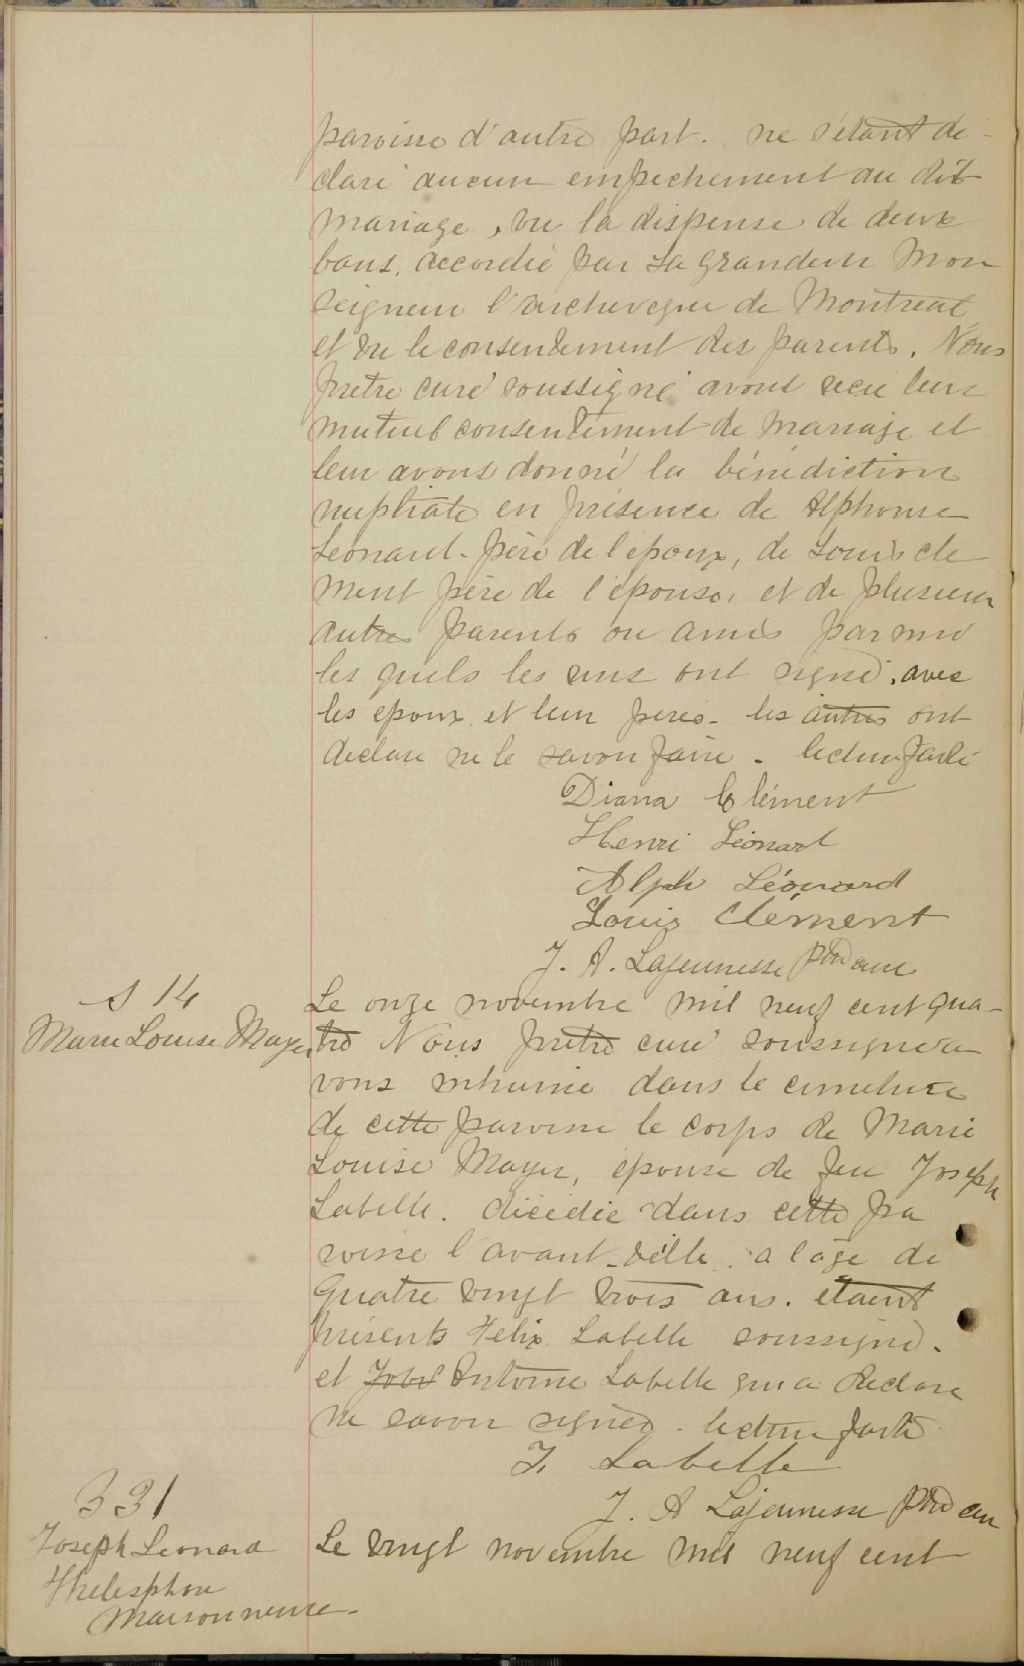 paroisse d'autre part. ne s'étant dé-
claré aucun empechement au dit
mariage, vu la dispense de deux
bans, accordée par Sa Grandeur Mon
seigneur l'archeveque de Montreal
et vu le consentement des parents. Nous
pretre curé soussigné avons recu leur
mutuel consentement de mariage et
leur avons donné la bénédiction
nuptiale en présence de Alphonse
Leonard père de l'époux, de Louis Cle
ment père de l'épouse, et de plusieurs
autres parents ou amis parmi
les quels les uns ont signé, avec
les epoux et leur peres - les autres ont
declare ne le savoir faire. lecture faite
Diana Clément
Henri Léonard
Alph Léonard
Louis Clément
J. A. Lajeunesse ptre cure
S 14
Marie Louise Mayer
Le onze novembre mil neuf cent qua-
tre Nous pretre curé soussigné a
vons inhumé dans le cimetiere
de cette paroisse le corps de Marie
Louise Mayer, épouse de feu Joseph
Labelle. décédée dans cette pa
roisse l'avant-veille. a l'age de
quatre vingt trois ans. etaient
présents Felix Labelle soussigné.
et Antoine Labelle qui a declare
ne savoir signer. lecture faite
F. Labelle
J. A Lajeunesse ptre cure
B 31
Joseph Leonard
Thelesphore
Maisonneuve.
Le vingt novembre mil neuf cent